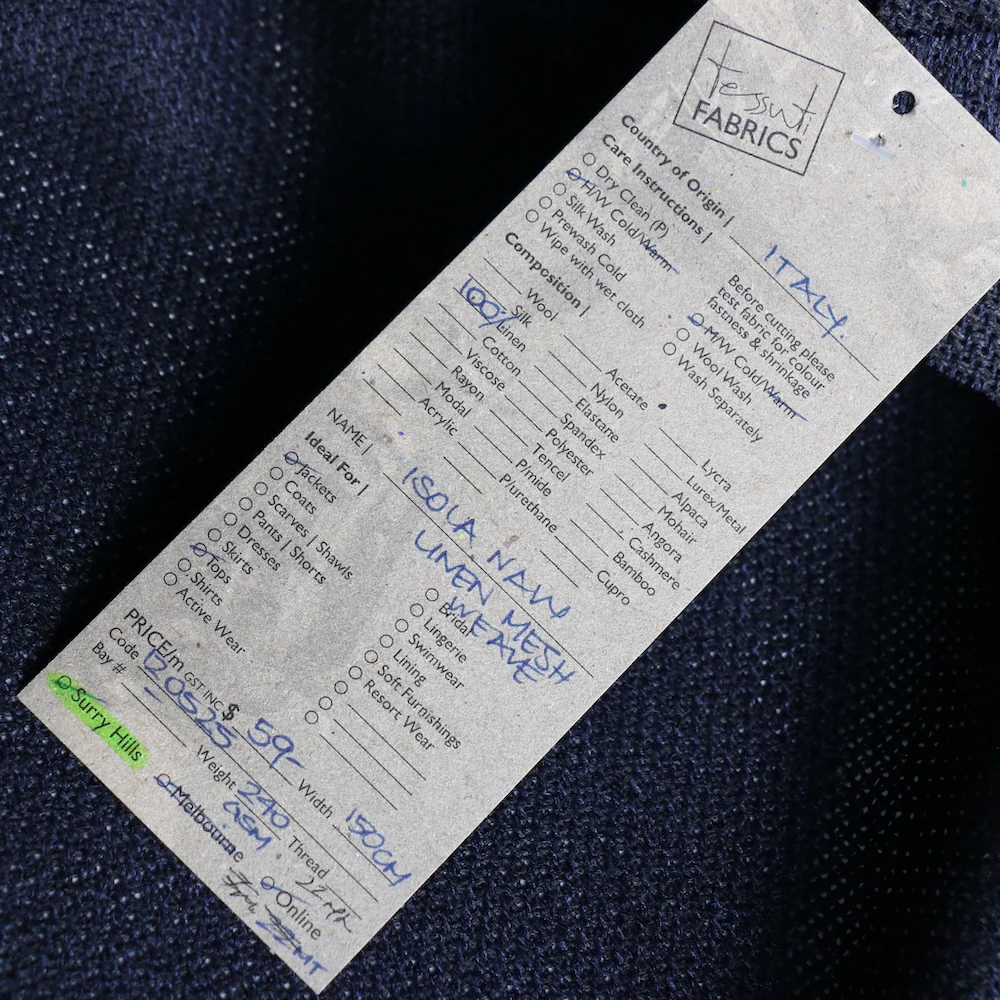 tessuti
FABRICS
Country of Origin | ITALY.
Care Instructions |
Dry Clean (P)
H/W Cold/Warm
Silk Wash
Prewash Cold
Wipe with wet cloth
Before cutting please
test fabric for colour
fastness & shrinkage
M/W Cold/Warm
Wool Wash
Wash Separately
Composition |
Wool
Silk
100% Linen
Cotton
Viscose
Rayon
Modal
Acrylic
Acetate
Nylon
Elastane
Spandex
Polyester
Tencel
P/mide
P/urethane
Lycra
Lurex/Metal
Alpaca
Mohair
Angora
Cashmere
Bamboo
Cupro
NAME | ISOLA NAVY
LINEN MESH
WEAVE
Ideal For |
Jackets
Coats
Scarves | Shawls
Pants | Shorts
Dresses
Skirts
Tops
Shirts
Active Wear
Bridal
Lingerie
Swimwear
Lining
Soft Furnishings
Resort Wear
PRICE/m GST INC $ 59-
Code 120525 Width 150CM
Bay # Weight 240 GSM Thread
Surry Hills
Melbourne
Online